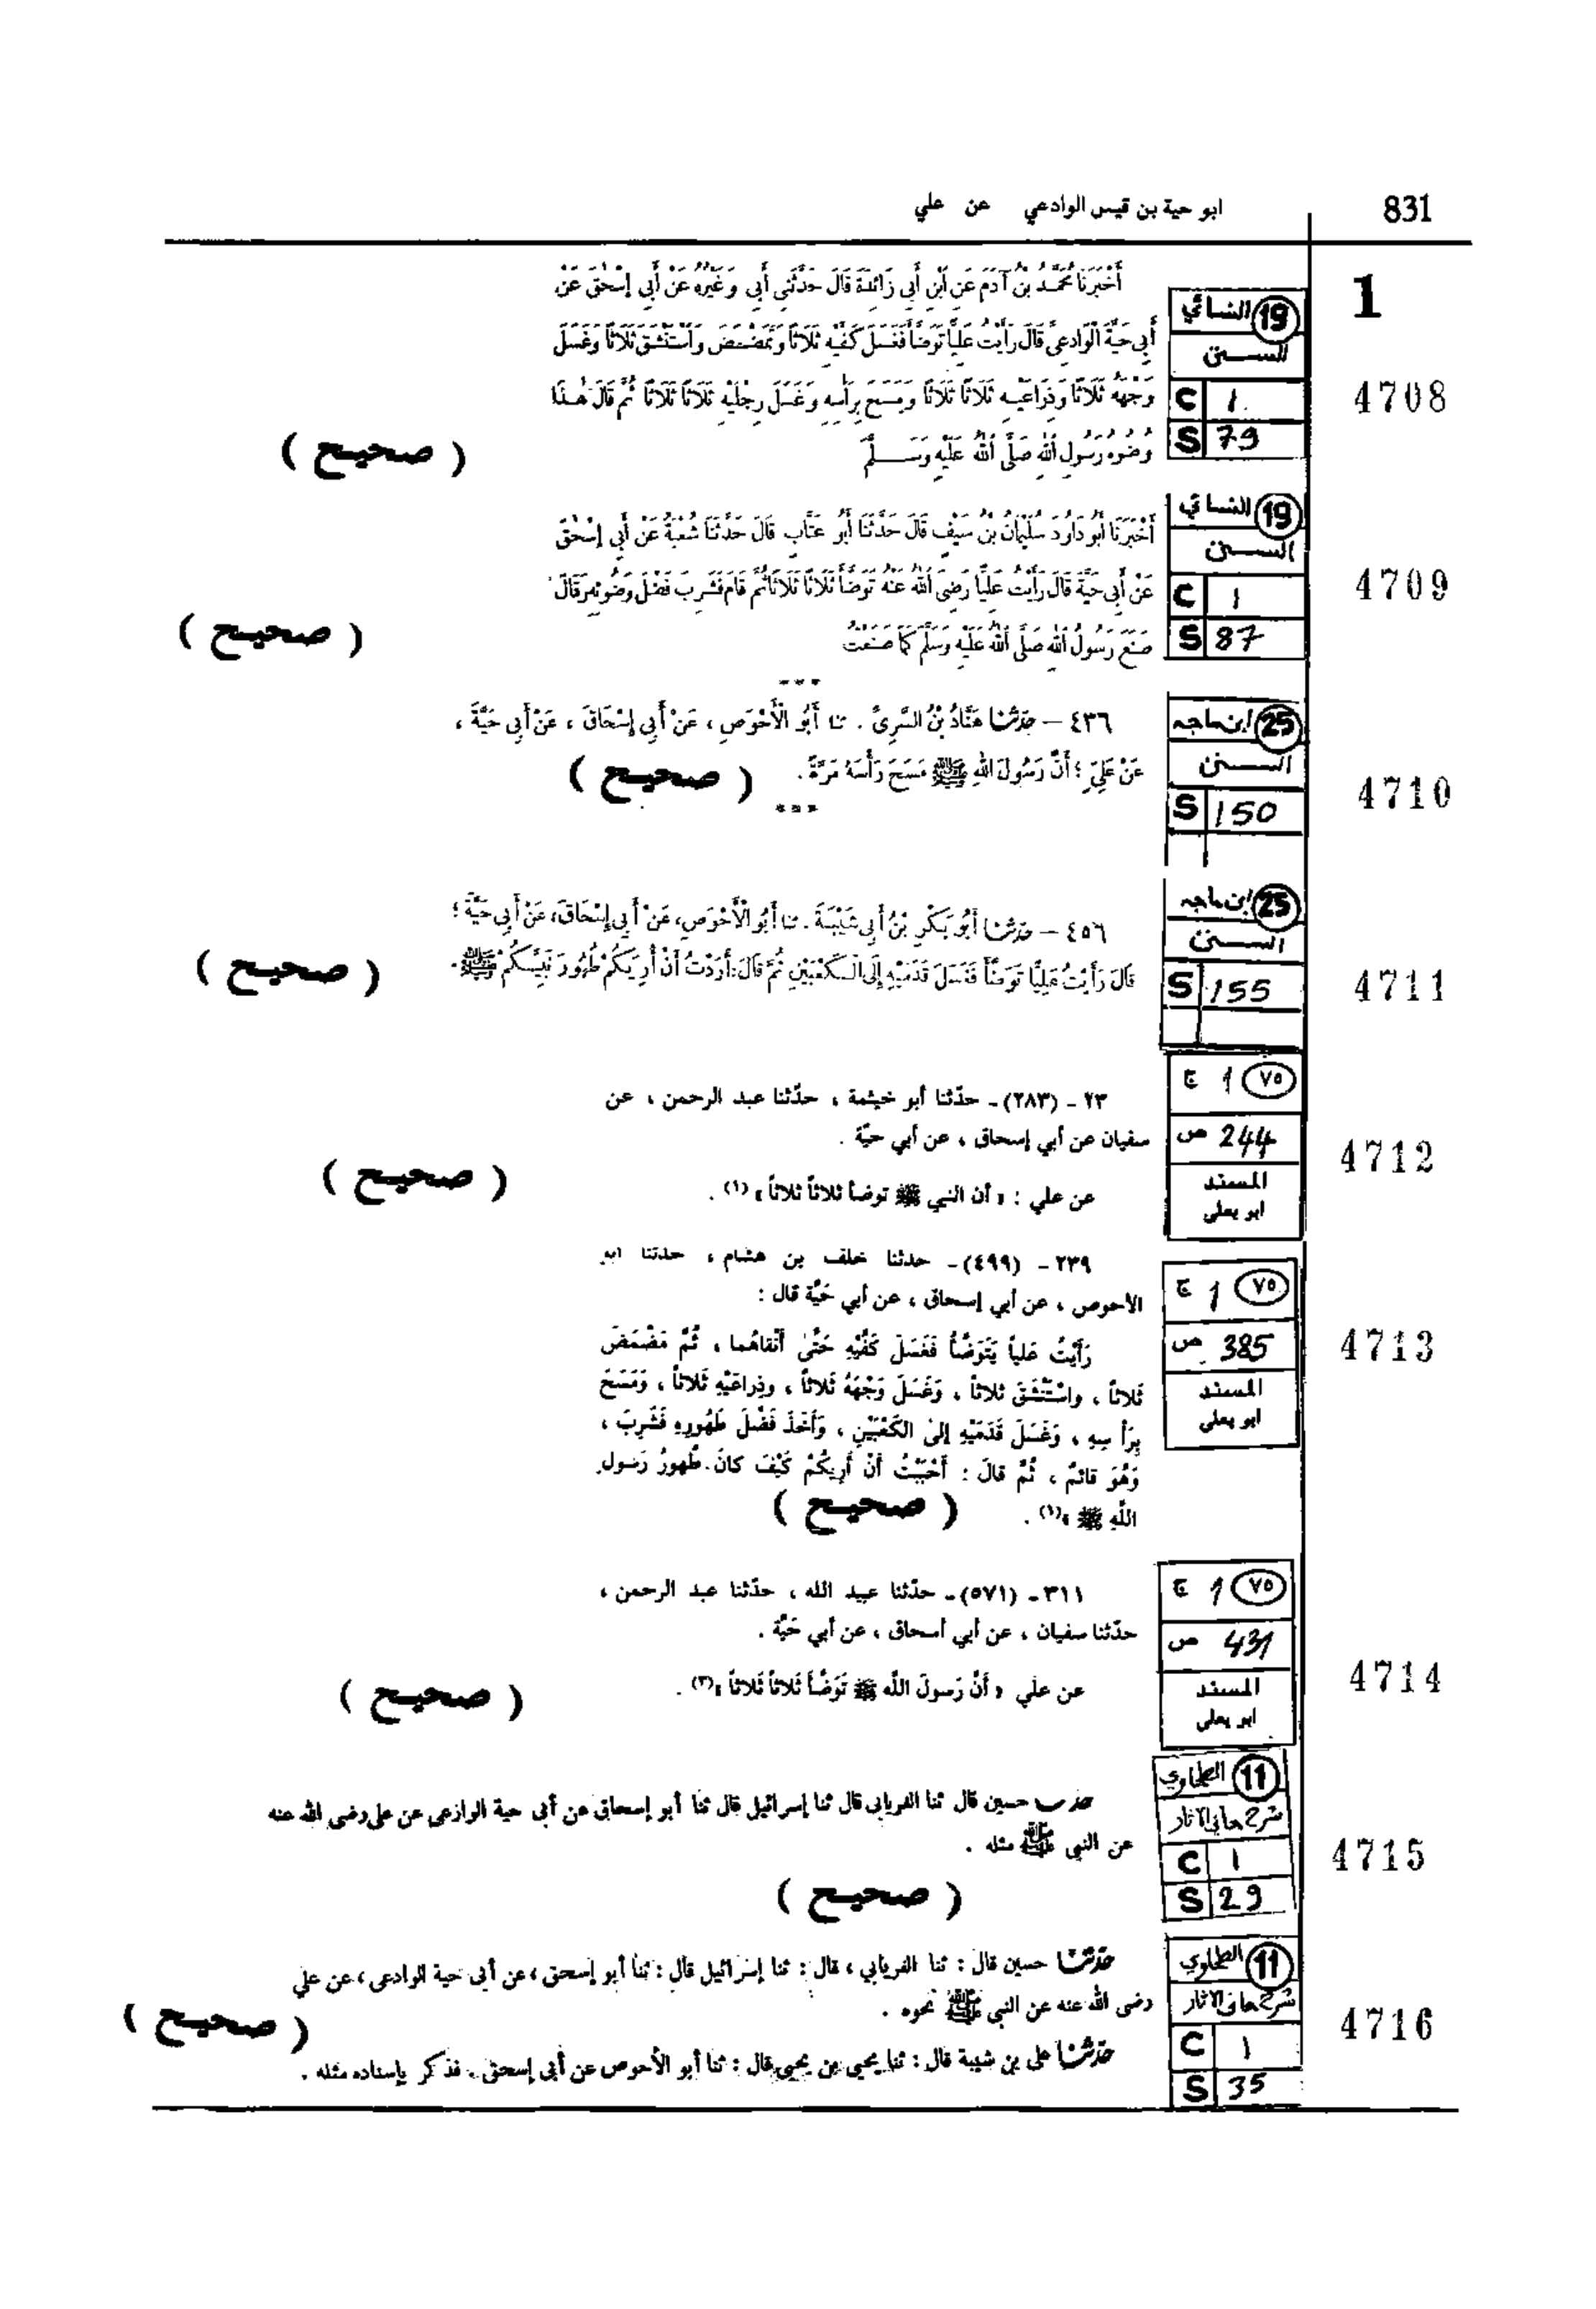 831
ابو حية بن قيس الوادعي عن علي
1
4708
19 النسائي
السنن
C 1
S 79
أَخْبَرَنَا مُحَمَّدُ بْنُ آدَمَ عَنِ ابْنِ أَبِي زَائِدَةَ قَالَ حَدَّثَنِي أَبِي وَغَيْرُهُ عَنْ أَبِي إِسْحٰقَ عَنْ
أَبِي حَيَّةَ الْوَادِعِيِّ قَالَ رَأَيْتُ عَلِيًّا تَوَضَّأَ فَغَسَلَ كَفَّيْهِ ثَلَاثًا وَتَمَضْمَضَ وَاسْتَنْشَقَ ثَلَاثًا وَغَسَلَ
وَجْهَهُ ثَلَاثًا وَذِرَاعَيْهِ ثَلَاثًا ثَلَاثًا وَمَسَحَ بِرَأْسِهِ وَغَسَلَ رِجْلَيْهِ ثَلَاثًا ثَلَاثًا ثُمَّ قَالَ هٰذَا
وُضُوءُ رَسُولِ اللهِ صَلَّى اللهُ عَلَيْهِ وَسَلَّمَ
( صحيح )
4709
19 النسائي
السنن
C 1
S 87
أَخْبَرَنَا أَبُو دَاوُدَ سُلَيْمَانُ بْنُ سَيْفٍ قَالَ حَدَّثَنَا أَبُو عَتَّابٍ قَالَ حَدَّثَنَا شُعْبَةُ عَنْ أَبِي إِسْحٰقَ
عَنْ أَبِي حَيَّةَ قَالَ رَأَيْتُ عَلِيًّا رَضِيَ اللهُ عَنْهُ تَوَضَّأَ ثَلَاثًا ثَلَاثًا ثُمَّ قَامَ فَشَرِبَ فَضْلَ وَضُوئِهِ وَقَالَ
صَنَعَ رَسُولُ اللهِ صَلَّى اللهُ عَلَيْهِ وَسَلَّمَ كَمَا صَنَعْتُ
( صحيح )
***
4710
25 ابن ماجه
السنن
S 150
٤٣٦ – حَدَّثَنَا هَنَّادُ بْنُ السَّرِيِّ . ثنا أَبُو الْأَحْوَصِ ، عَنْ أَبِي إِسْحَاقَ ، عَنْ أَبِي حَيَّةَ ،
عَنْ عَلِيٍّ ؛ أَنَّ رَسُولَ اللهِ ﷺ مَسَحَ رَأْسَهُ مَرَّةً .
( صحيح )
***
4711
25 ابن ماجه
السنن
S 155
٤٥٦ – حَدَّثَنَا أَبُو بَكْرِ بْنُ أَبِي شَيْبَةَ . ثنا أَبُو الْأَحْوَصِ، عَنْ أَبِي إِسْحَاقَ، عَنْ أَبِي حَيَّةَ ؛
قَالَ رَأَيْتُ عَلِيًّا تَوَضَّأَ فَغَسَلَ قَدَمَيْهِ إِلَى الْكَعْبَيْنِ ثُمَّ قَالَ: أَرَدْتُ أَنْ أُرِيَكُمْ طُهُورَ نَبِيِّكُمْ ﷺ.
( صحيح )
4712
٧٥ 1 ج
244 ص
المسند
ابو يعلى
٢٣ - (٢٨٣) - حدّثنا أبو خيثمة ، حدّثنا عبد الرحمن ، عن
سفيان عن أبي إسحاق ، عن أبي حيّة .
عن علي : « أن النبي ﷺ توضأ ثلاثاً ثلاثاً » (١) .
( صحيح )
4713
٧٥ 1 ج
385 ص
المسند
ابو يعلى
٢٣٩ - (٤٩٩) - حدثنا خلف بن هشام ، حدثنا ابو
الأحوص ، عن أبي إسحاق ، عن أبي حَيَّة قال :
رَأَيْتُ علياً يَتَوَضَّأُ فَغَسَلَ كَفَّيْهِ حَتَّى أَنْقاهُما ، ثُمَّ مَضْمَضَ
ثَلاثاً ، واسْتَنْشَقَ ثلاثاً ، وَغَسَلَ وَجْهَهُ ثَلاثاً ، وذِراعَيْهِ ثَلاثاً ، وَمَسَحَ
بِرَأْسِهِ ، وَغَسَلَ قَدَمَيْهِ إلىٰ الكَعْبَيْنِ ، وَأَخَذَ فَضْلَ طَهُورِهِ فَشَرِبَ ،
وَهُوَ قائمٌ ، ثُمَّ قالَ : أَحْبَبْتُ أَنْ أُرِيَكُمْ كَيْفَ كانَ طُهورُ رَسولِ
اللَّهِ ﷺ »(١) .
( صحيح )
4714
٧٥ 1 ج
431 ص
المسند
ابو يعلى
٣١١ - (٥٧١) - حدّثنا عبيد الله ، حدّثنا عبد الرحمن ،
حدّثنا سفيان ، عن أبي أسحاق ، عن أبي حَيَّة .
عن علي « أَنَّ رَسولَ اللَّه ﷺ تَوَضَّأَ ثَلاثاً ثَلاثاً »(٣) .
( صحيح )
4715
11 الطحاوي
شرح معاني الاثار
C 1
S 29
حدثنا حسين قال ثنا الفريابى قال ثنا إسرائيل قال ثنا أبو إسحاق عن أبى حية الوازعى عن على رضى الله عنه
عن النبى ﷺ مثله .
( صحيح )
4716
11 الطحاوي
شرح معاني الاثار
C 1
S 35
حدّثنا حسين قال : ثنا الفريابي ، قال : ثنا إسرائيل قال : ثنا أبو إسحق ، عن أبى حية الوادعى ، عن علي
رضى الله عنه عن النبى ﷺ نحوه .
حدّثنا على بن شيبة قال : ثنا يحيى بن يحيى قال : ثنا أبو الأحوص عن أبى إسحق . فذكر بإسناده مثله .
( صحيح )